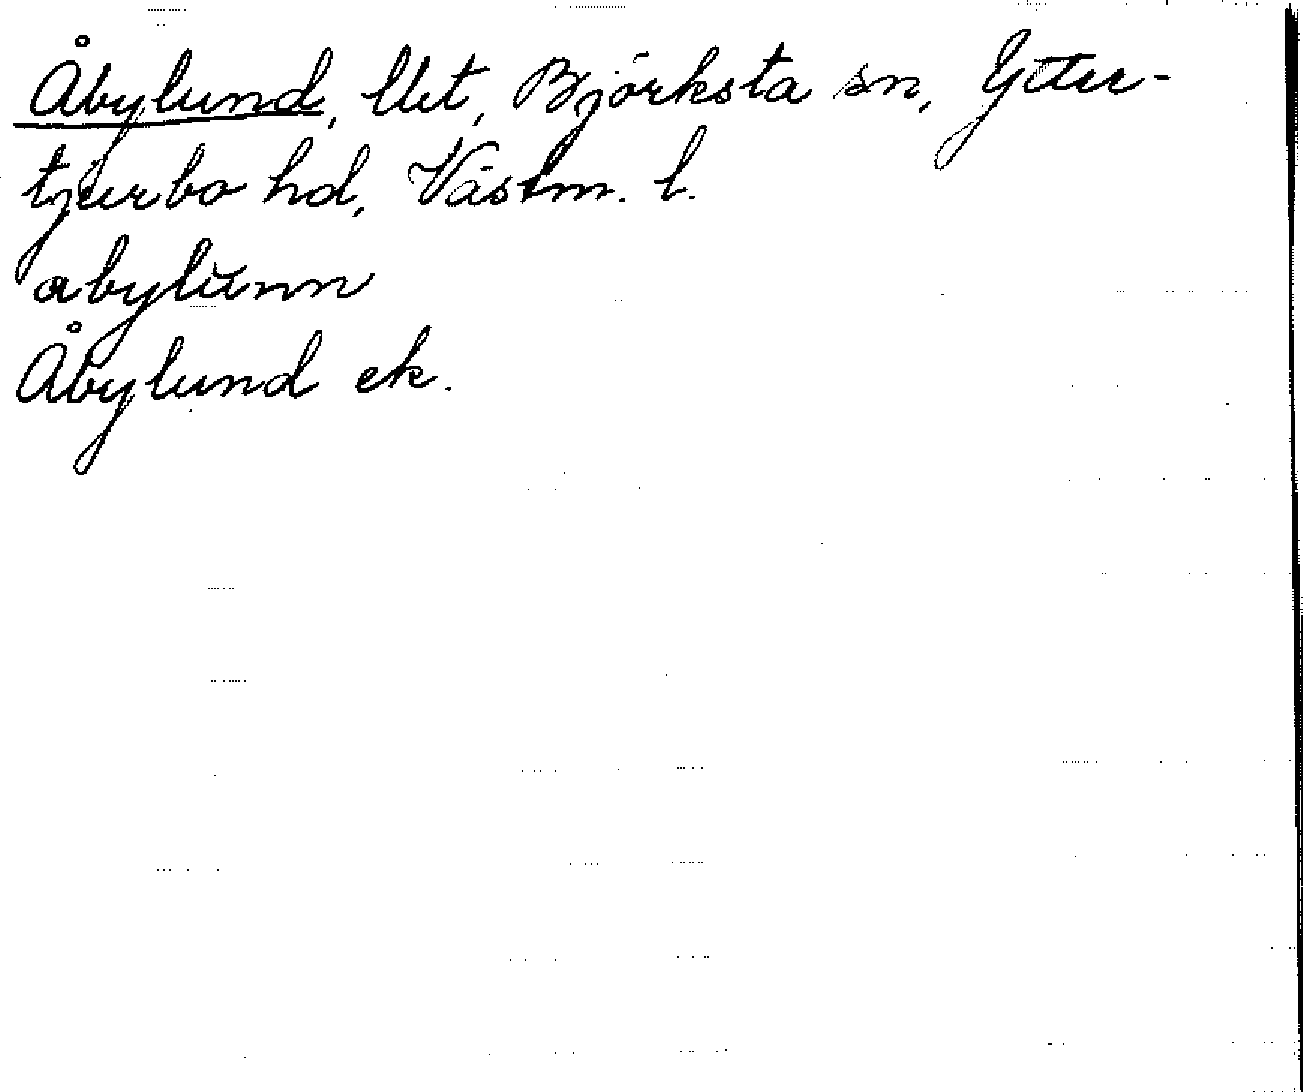 Åbylund, lht, Björksta sn, Ytter-
tjurbo hd, Västm. l.
abylŭnn
Åbylund ek.